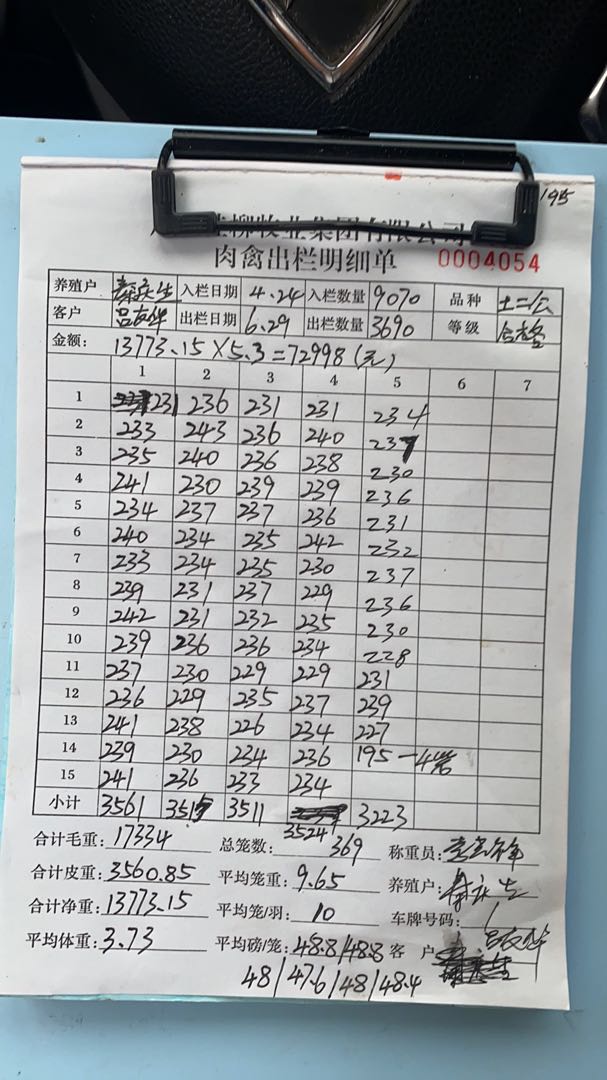 195
柳牧业集团有限公司
肉禽出栏明细单 0004054
养殖户 秦庆生 入栏日期 4.24 入栏数量 9070 品种 土二公
客户 吕友华 出栏日期 6.29 出栏数量 3690 等级 合格
金额: 13773.15×5.3=72998(元)
1 2 3 4 5 6 7
1 231 236 231 231 234
2 233 243 236 240 237
3 235 240 236 238 230
4 241 230 239 239 236
5 234 237 237 236 231
6 240 234 235 242 232
7 233 234 235 230 237
8 239 231 237 229 236
9 242 231 232 235 230
10 239 236 236 234 228
11 237 230 229 229 231
12 236 229 235 237 239
13 241 238 226 234 227
14 239 230 234 236 195-4笼
15 241 236 233 234
小计 3561 3515 3511 3524 3223
合计毛重: 17334 总笼数: 369 称重员:
合计皮重: 3560.85 平均笼重: 9.65 养殖户: 秦庆生
合计净重: 13773.15 平均笼/羽: 10 车牌号码: /
平均体重: 3.73 平均磅/笼: 48.8/48.8 客 户 吕友华
48/47.6/48/48.4